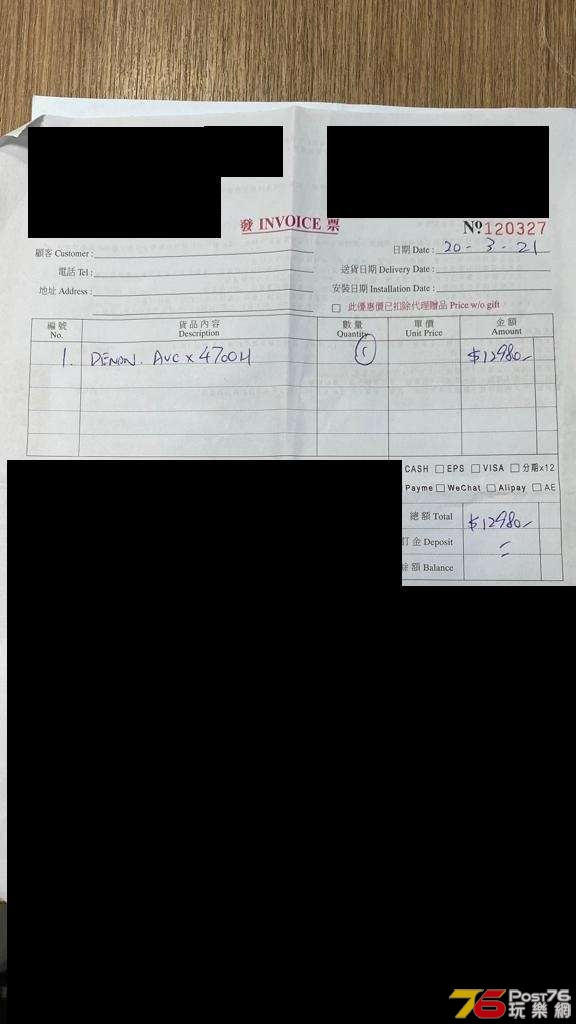 發 INVOICE 票
№ 120327
顧客 Customer :
日期 Date : 20 - 3 - 21
電話 Tel :
送貨日期 Delivery Date :
地址 Address :
安裝日期 Installation Date :
□ 此優惠價已扣除代理贈品 Price w/o gift
編號 貨品內容 數量 單價 金額
No. Description Quantity Unit Price Amount
1. DENON. AVC X 4700H 1 $12980-
CASH □ EPS □ VISA □ 分期x12
Payme □ WeChat □ Alipay □ AE
總額 Total $12980-
訂金 Deposit
餘額 Balance
76 Post76
玩樂網